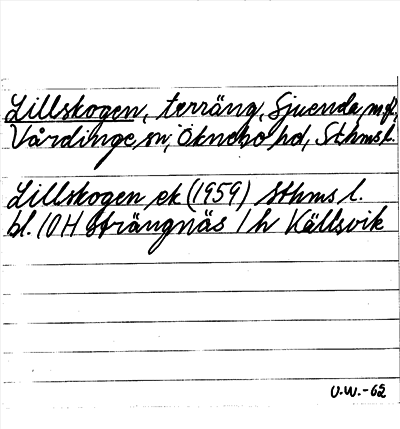 Lillskogen, terräng, Sjuenda, m.fl.,
Vårdinge, sn, Öknebo hd, Sthms l.
Lillskogen ek (1959) Sthms l.
bl. 10H Strängnäs 1h Källsvik
U.W.-62